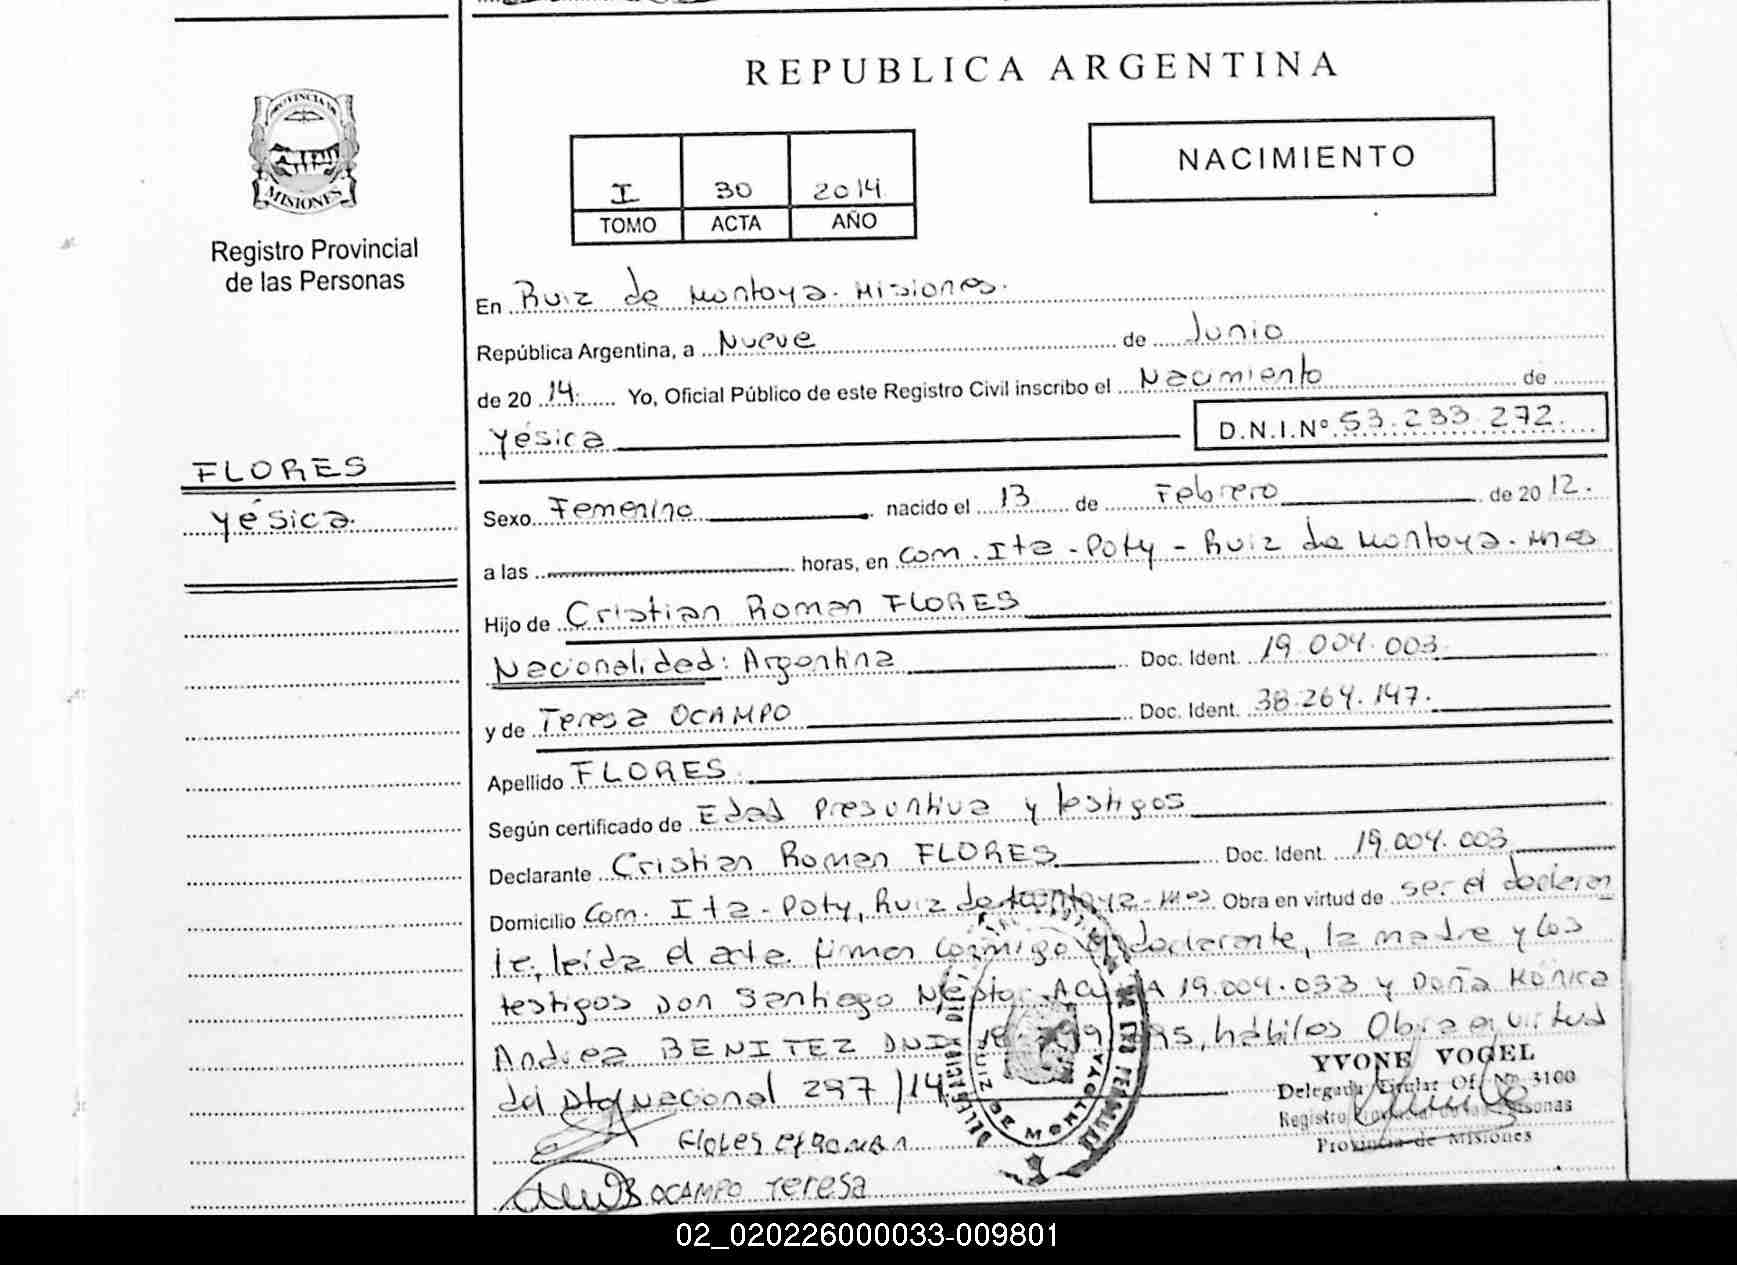 REPUBLICA ARGENTINA
PROVINCIA DE
MISIONES
Registro Provincial
de las Personas
I 30 2014
TOMO ACTA AÑO
NACIMIENTO
En Ruiz de Montoya. Misiones.
República Argentina, a Nueve de Junio
de 20 14. Yo, Oficial Público de este Registro Civil inscribo el Nacimiento de
Yésica D.N.I.Nº 53.233.272.
FLORES
Yésica.
Sexo Femenino nacido el 13 de Febrero de 20 12.
a las horas, en Com. Ita-Poty - Ruiz de Montoya. Mnes
Hijo de Cristian Roman FLORES
Nacionalidad: Argentina Doc. Ident. 19.004.003
y de Teresa OCAMPO Doc. Ident. 38.264.147.
Apellido FLORES
Según certificado de Edad Presuntiva y testigos
Declarante Cristian Roman FLORES Doc. Ident. 19.004.003
Domicilio Com. Ita-Poty, Ruiz de Montoya-Mnes Obra en virtud de ser el declaran
te, leída el acta. firman conmigo el declarante, la madre y los
testigos Don Santiago Néstor ACUÑA 19.004.033 y Doña Mónica
Andrea BENITEZ DNI hábiles Obra en virtud
del Dto Nacional 297/14
YVONE VOGEL
Delegada Titular Of. Nº 3100
Registro Provincial de las Personas
Provincia de Misiones
RUIZ DE MONTOYA
FLORES
OCAMPO Teresa
02_020226000033-009801